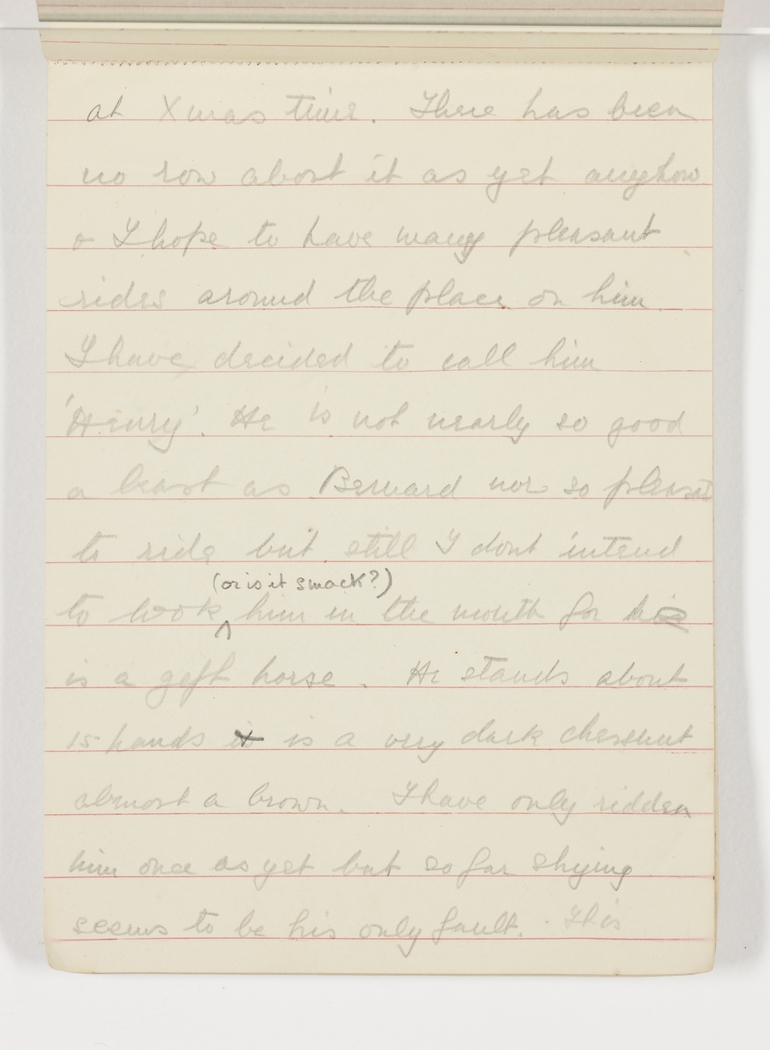 at Xmas time. There has been
no row about it as yet anyhow
& I hope to have many pleasant
rides around the place on him.
I have decided to call him
'Henry'. He is not nearly so good
a beast as Bernard nor so pleasant
to ride but still I dont intend
(or is it smack?)
to look him in the mouth for he
is a gift horse. He stands about
15 hands is a very dark chessnut
almost a brown. I have only ridden
him once as yet but so far shying
seems to be his only fault. This